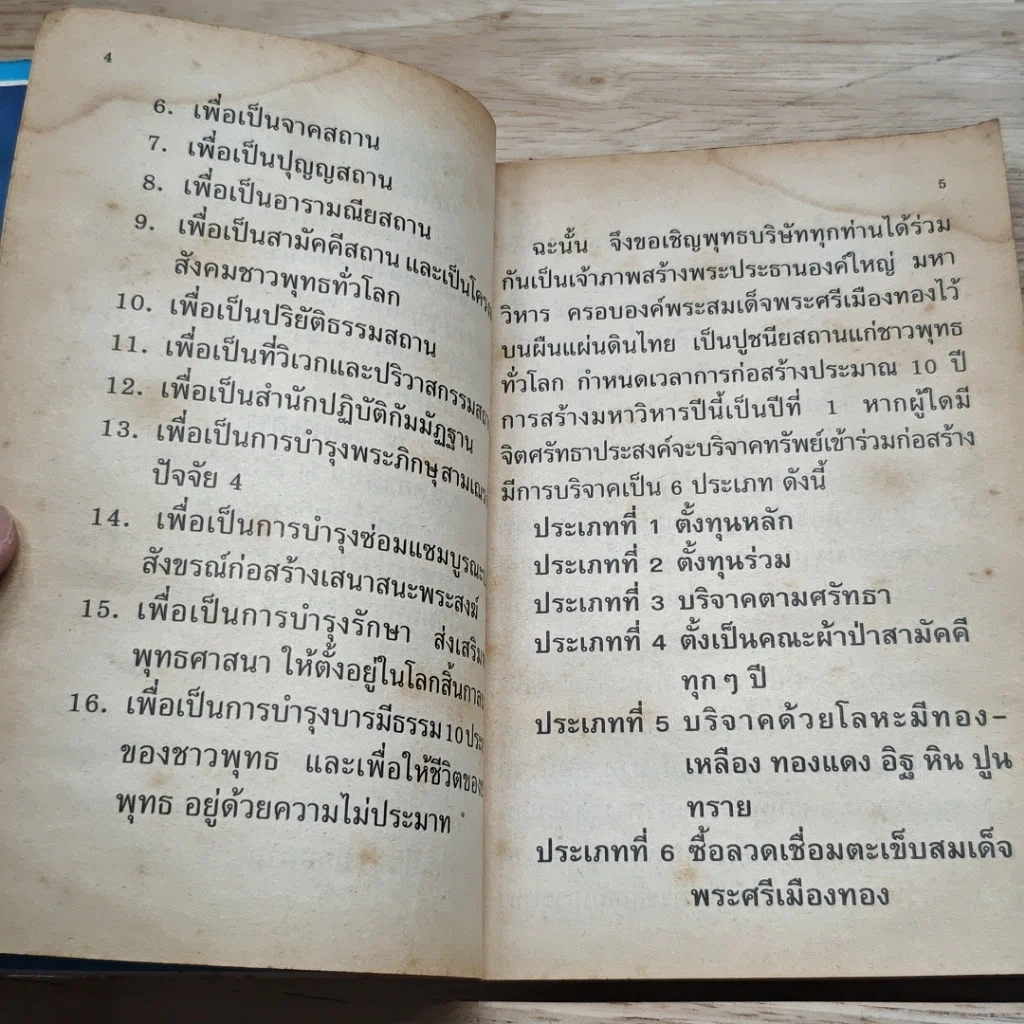 4
6. เพื่อเป็นจาคสถาน
7. เพื่อเป็นปุญญสถาน
8. เพื่อเป็นอารามณียสถาน
9. เพื่อเป็นสามัคคีสถาน และเป็น
สังคมชาวพุทธทั่วโลก
10. เพื่อเป็นปริยัติธรรมสถาน
11. เพื่อเป็นที่วิเวกและปริวาสกรรม
12. เพื่อเป็นสำนักปฏิบัติกัมมัฏฐาน
13. เพื่อเป็นการบำรุงพระภิกษุ
ปัจจัย 4
14. เพื่อเป็นการบำรุงซ่อมแซม
สังขรณ์ก่อสร้างเสนาสนะพระสงฆ์
15. เพื่อเป็นการบำรุงรักษา ส่งเสริม
พุทธศาสนา ให้ตั้งอยู่ในโลกสิ้น
16. เพื่อเป็นการบำรุงบารมีธรรม 10
ของชาวพุทธ และเพื่อให้ชีวิต
พุทธ อยู่ด้วยความไม่ประมาท
5
ฉะนั้น จึงขอเชิญพุทธบริษัททุกท่านได้ร่วม
กันเป็นเจ้าภาพสร้างพระประธานองค์ใหญ่ มหา
วิหาร ครอบองค์พระสมเด็จพระศรีเมืองทองไว้
บนผืนแผ่นดินไทย เป็นปูชนียสถานแก่ชาวพุทธ
ทั่วโลก กำหนดเวลาการก่อสร้างประมาณ 10 ปี
การสร้างมหาวิหารปีนี้เป็นปีที่ 1 หากผู้ใดมี
จิตศรัทธาประสงค์จะบริจาคทรัพย์เข้าร่วมก่อสร้าง
มีการบริจาคเป็น 6 ประเภท ดังนี้
ประเภทที่ 1 ตั้งทุนหลัก
ประเภทที่ 2 ตั้งทุนร่วม
ประเภทที่ 3 บริจาคตามศรัทธา
ประเภทที่ 4 ตั้งเป็นคณะผ้าป่าสามัคคี
ทุกๆ ปี
ประเภทที่ 5 บริจาคด้วยโลหะมีทอง-
เหลือง ทองแดง อิฐ หิน ปูน
ทราย
ประเภทที่ 6 ซื้อลวดเชื่อมตะเข็บสมเด็จ
พระศรีเมืองทอง